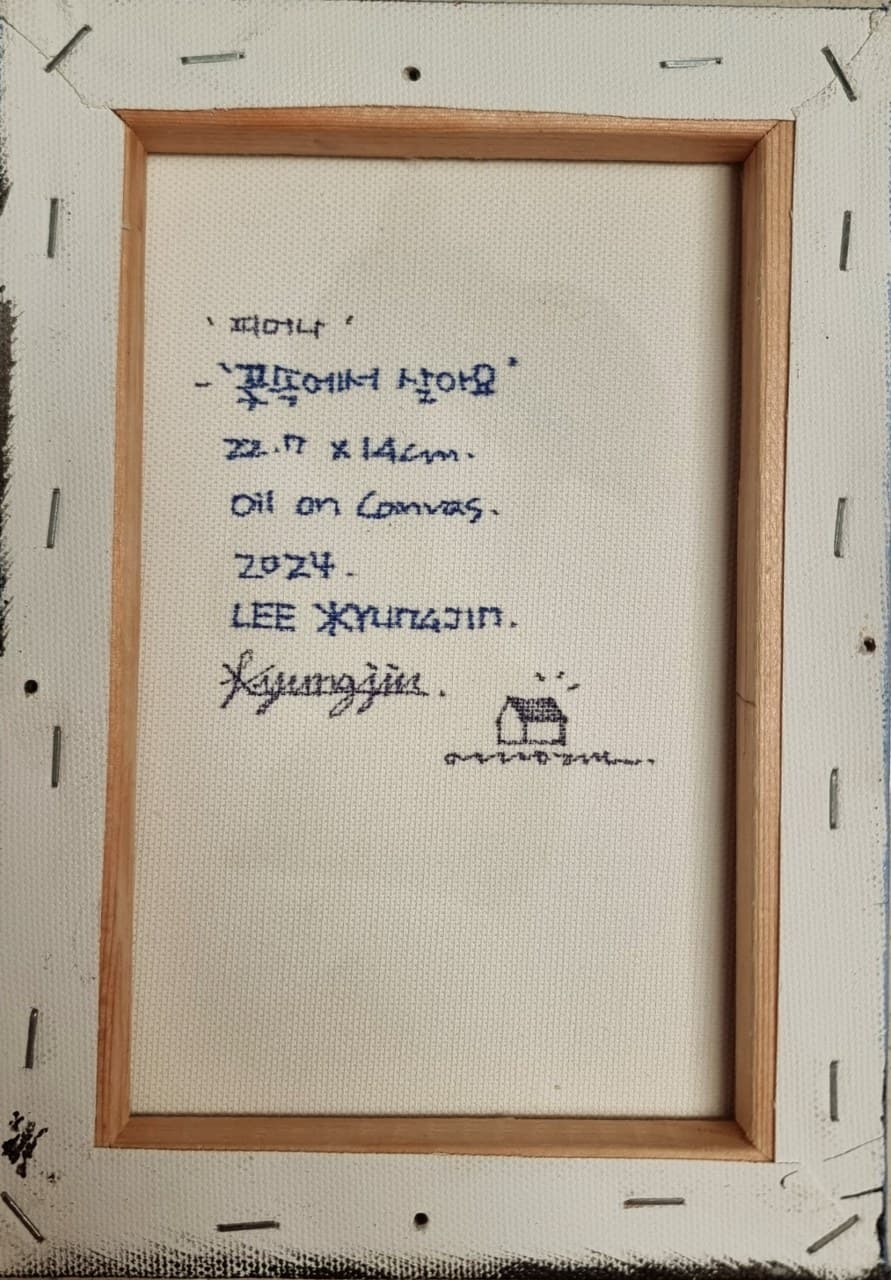 '피어나'
- '꽃뜻에서 살아요'
22.7 x 14cm.
Oil on Canvas.
2024.
LEE KYUNGJIN.
Kyungjin.